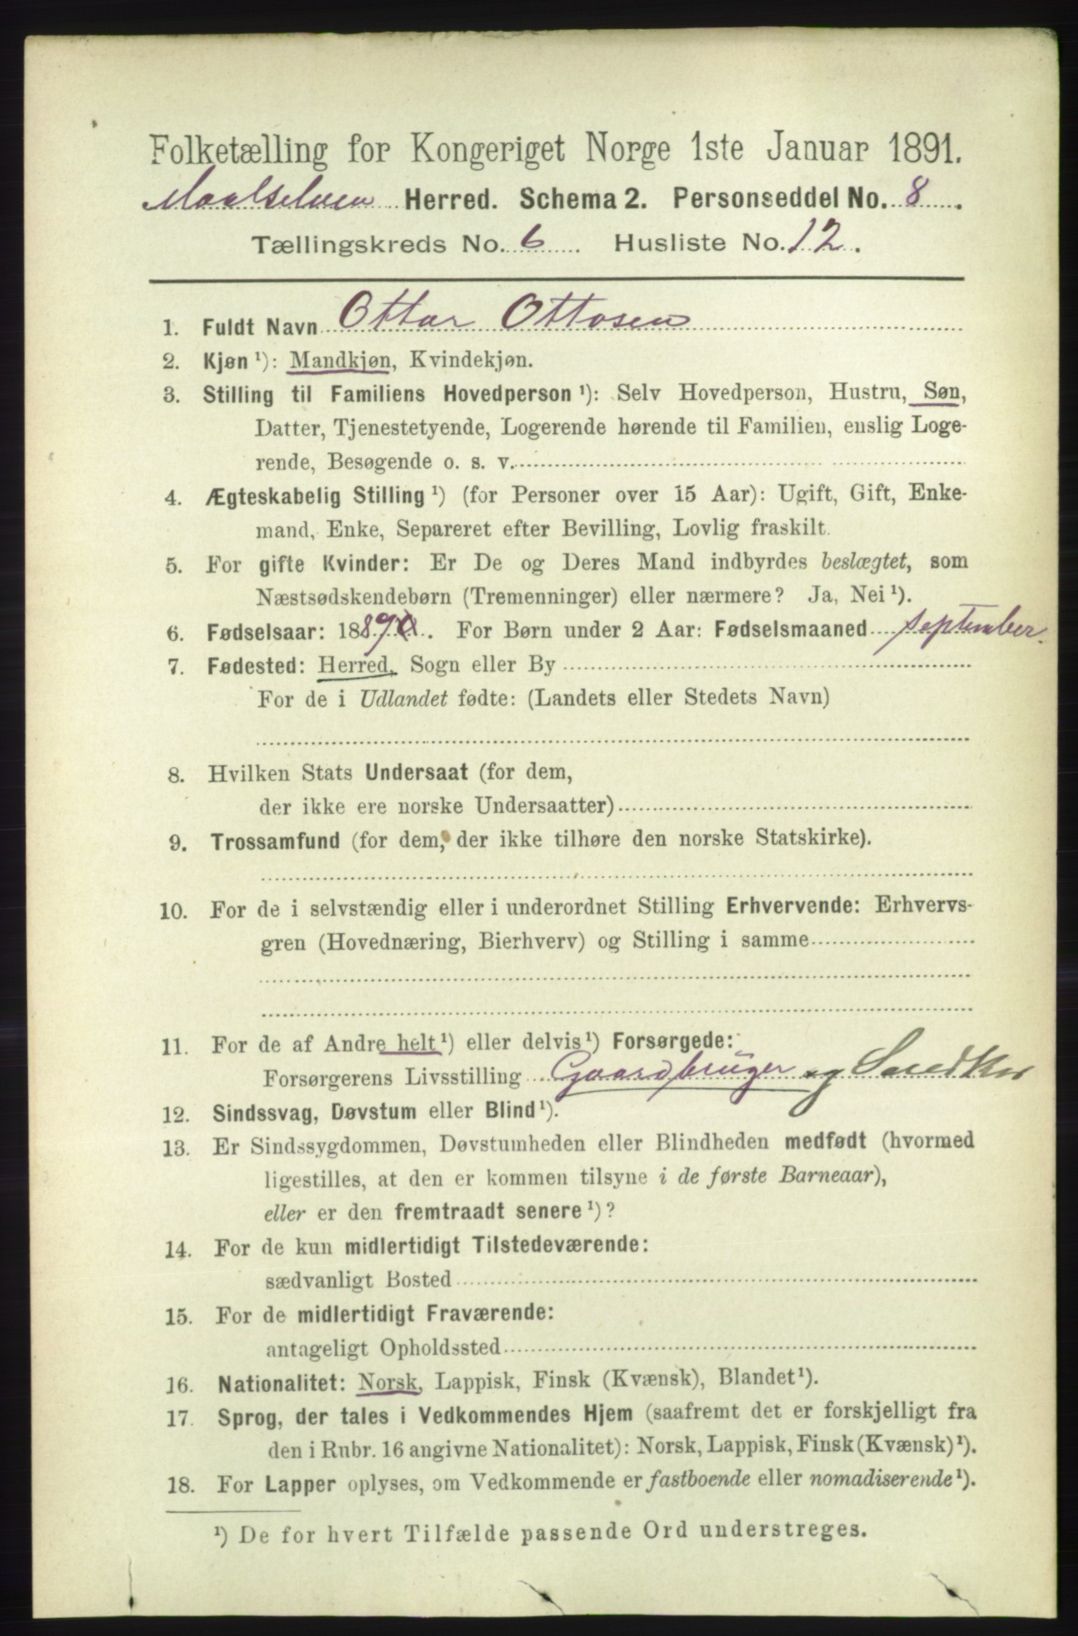 Folketælling for Kongeriget Norge 1ste Januar 1891.
Maalselven Herred. Schema 2. Personseddel No. 8.
Tællingskreds No. 6 Husliste No. 12.
1. Fuldt Navn Ottar Ottosen
2. Kjøn ¹): Mandkjøn, Kvindekjøn.
3. Stilling til Familiens Hovedperson ¹): Selv Hovedperson, Hustru, Søn,
Datter, Tjenestetyende, Logerende hørende til Familien, enslig Loge-
rende, Besøgende o. s. v.
4. Ægteskabelig Stilling ¹) (for Personer over 15 Aar): Ugift, Gift, Enke-
mand, Enke, Separeret efter Bevilling, Lovlig fraskilt.
5. For gifte Kvinder: Er De og Deres Mand indbyrdes beslægtet, som
Næstsødskendebørn (Tremenninger) eller nærmere? Ja, Nei ¹).
6. Fødselsaar: 1890. For Børn under 2 Aar: Fødselsmaaned september.
7. Fødested: Herred, Sogn eller By
For de i Udlandet fødte: (Landets eller Stedets Navn)
8. Hvilken Stats Undersaat (for dem,
der ikke ere norske Undersaatter)
9. Trossamfund (for dem, der ikke tilhøre den norske Statskirke).
10. For de i selvstændig eller i underordnet Stilling Erhvervende: Erhvervs-
gren (Hovednæring, Bierhverv) og Stilling i samme
11. For de af Andre helt ¹) eller delvis ¹) Forsørgede:
Forsørgerens Livsstilling Gaardbruger og Snedker
12. Sindssvag, Døvstum eller Blind ¹).
13. Er Sindssygdommen, Døvstumheden eller Blindheden medfødt (hvormed
ligestilles, at den er kommen tilsyne i de første Barneaar),
eller er den fremtraadt senere ¹)?
14. For de kun midlertidigt Tilstedeværende:
sædvanligt Bosted
15. For de midlertidigt Fraværende:
antageligt Opholdssted
16. Nationalitet: Norsk, Lappisk, Finsk (Kvænsk), Blandet ¹).
17. Sprog, der tales i Vedkommendes Hjem (saafremt det er forskjelligt fra
den i Rubr. 16 angivne Nationalitet): Norsk, Lappisk, Finsk (Kvænsk) ¹).
18. For Lapper oplyses, om Vedkommende er fastboende eller nomadiserende ¹).
¹) De for hvert Tilfælde passende Ord understreges.